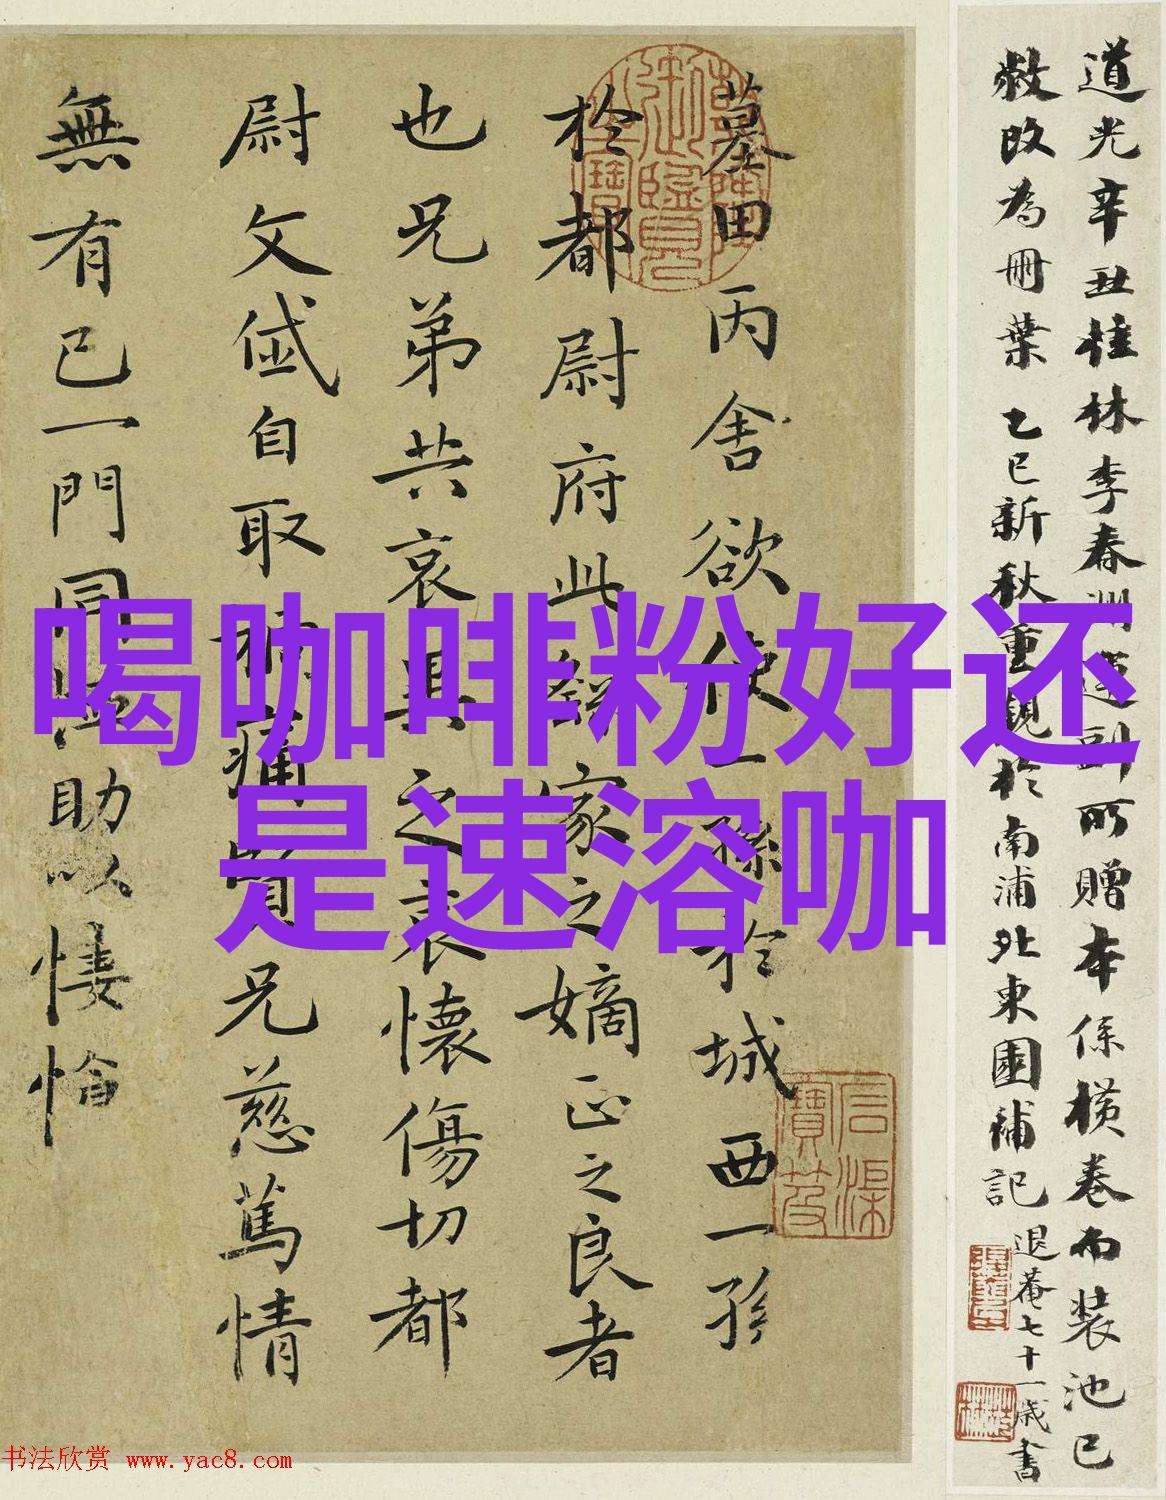 喝咖啡粉好还
是速溶咖
道光辛丑桂林李春洲造訪所贈本係橫卷而裝池已
敝改為冊葉 乙巳新秋重觀於南浦北東園補記
退菴七十一歲書
墓田丙舍欲使一孫於城西一孫
於都尉府此繇家之嫡正之良者
也兄弟共哀異之哀懷傷切都
尉文岱自取禍痛賢兄慈篤情
無有已一門同恤助以悽愴
書法欣赏 www.yac8.com